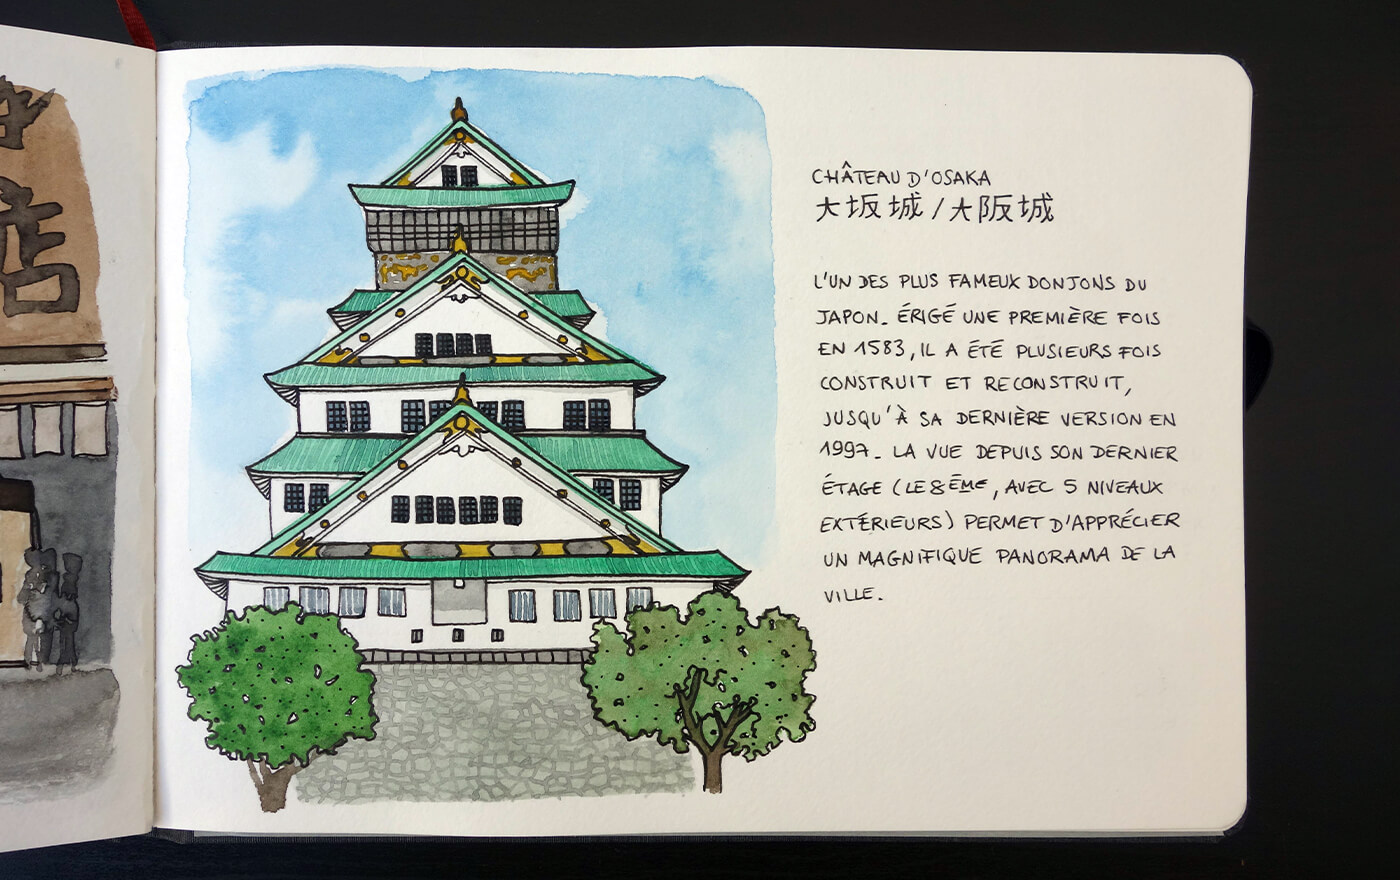 店
CHÂTEAU D'OSAKA
大坂城/大阪城
L'UN DES PLUS FAMEUX DONJONS DU
JAPON. ÉRIGÉ UNE PREMIÈRE FOIS
EN 1583, IL A ÉTÉ PLUSIEURS FOIS
CONSTRUIT ET RECONSTRUIT,
JUSQU'À SA DERNIÈRE VERSION EN
1997. LA VUE DEPUIS SON DERNIER
ÉTAGE (LE 8ÈME, AVEC 5 NIVEAUX
EXTÉRIEURS) PERMET D'APPRÉCIER
UN MAGNIFIQUE PANORAMA DE LA
VILLE.